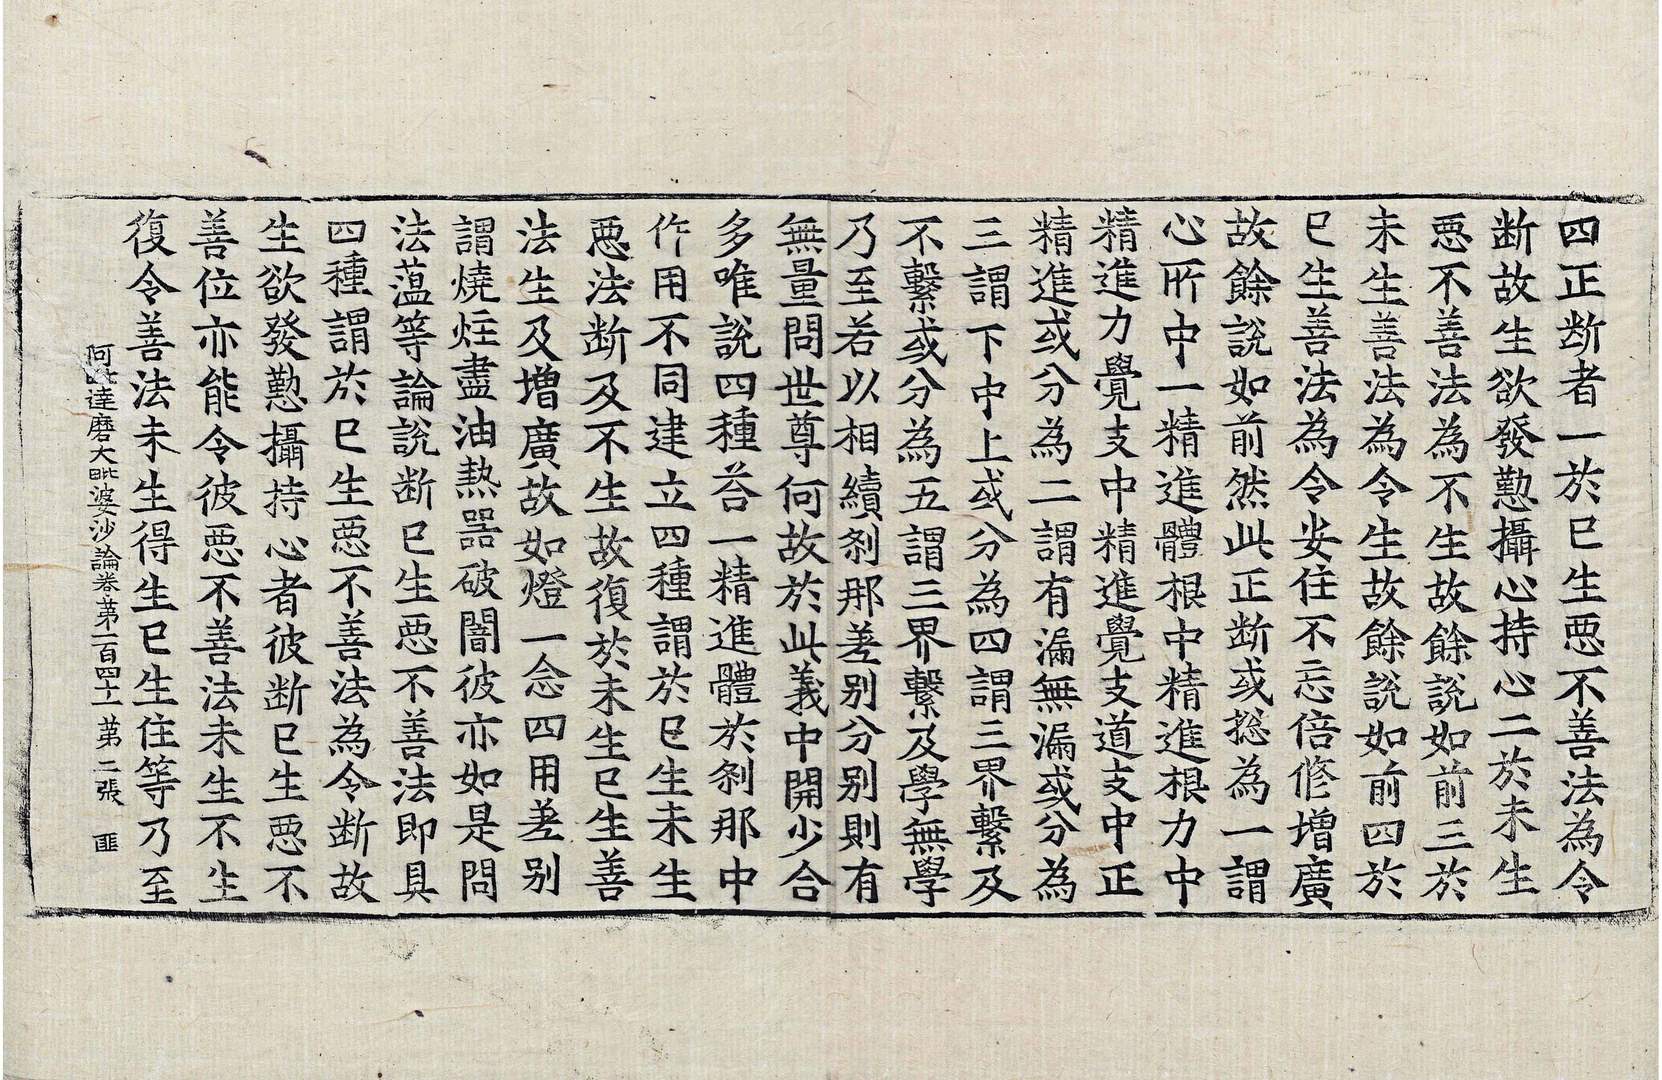 四正断者一於已生悪不善法為令
断故生欲發懃攝心持心二於未生
悪不善法為不生故餘說如前三於
未生善法為令生故餘說如前四於
已生善法為令安住不忘倍修增廣
故餘說如前然此正断或捴為一謂
心所中一精進體根中精進根力中
精進力覺支中精進覺支道支中正
精進或分為二謂有漏無漏或分為
三謂下中上或分為四謂三界繫及
不繫或分為五謂三界繫及學無學
乃至若以相續刹那差别分别則有
無量問世尊何故於此義中開少合
多唯說四種荅一精進體於刹那中
作用不同建立四種謂於已生未生
悪法断及不生故復於未生已生善
法生及增廣故如燈一念四用差别
謂燒炷盡油熱器破闇彼亦如是問
法蘊等論說断已生悪不善法即具
四種謂於已生悪不善法為令断故
生欲發懃攝持心者彼断已生悪不
善位亦能令彼悪不善法未生不生
復令善法未生得生已生住等乃至
阿毗達磨大毗婆沙論卷第一百四十一 第二張 匪